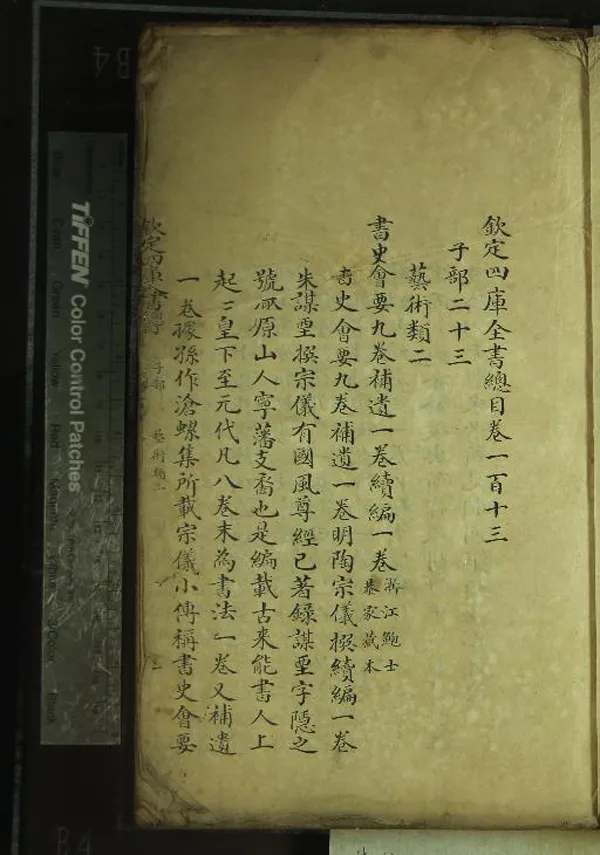 欽定四庫全書總目卷一百十三
子部二十三
藝術類二
書史會要九卷補遺一卷續編一卷浙江鮑士
恭家藏本
書史會要九卷補遺一卷明陶宗儀撰續編一卷
朱謀垔撰宗儀有國風尊經已著錄謀垔字隱之
號厭原山人寧藩支裔也是編載古来能書人上
起三皇下至元代凡八卷末為書法一卷又補遺
一卷據孫作滄螺集所載宗儀小傳稱書史會要
子部 藝術類二
TIFFEN Color Control Patches
B4
B4